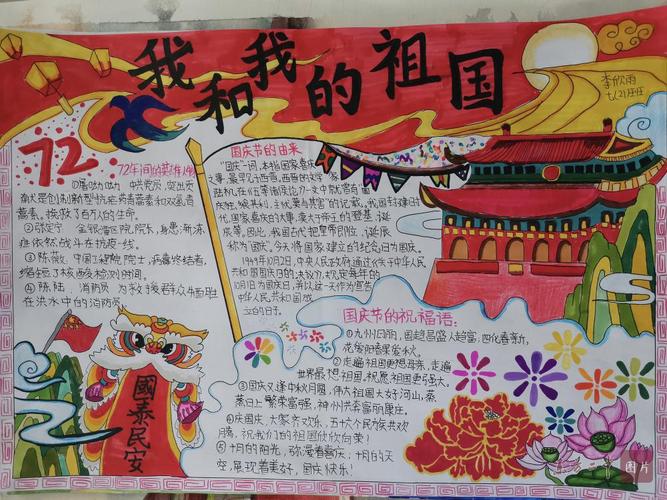 我和我的祖国
李欣雨
七(2)班
72
72年间的英雄
国庆节的由来
“国庆”一词,本指国家喜庆之
事,最早见于西晋。西晋的文学家
陆机在《五等诸侯论》一文中就曾有“国
庆独飨其利,主忧莫与其害”的记载。我国封建时
代,国家喜庆的大事,莫大于帝王的登基、诞
辰等。因此,我国古代把皇帝即位、诞辰
称为“国庆”。今天将国家建立的纪念日为国庆。
1949年10月2日,中央人民政府通过《关于中华人民
共和国国庆日的决议》,规定每年的
10月1日为国庆日,并以这一天作为宣告
中华人民共和国成
立的日子。
①屠呦呦 中共党员,突出贡
献是创制新型抗疟药青蒿素和双氢青
蒿素,挽救了百万人的生命。
②张定宇 金银潭医院院长,身患渐冻
症依然战斗在抗疫一线。
③陈薇,中国工程院院士,病毒终结者,
缩短了核酸检测时间。
④陈陆,消防员 为救援群众牺牲
在洪水中的消防员。
國泰民安
国庆节的祝福语:
①九州日丽,国趋昌盛人趋富;四化春新,
花爱阳春果爱秋。
②走遍祖国更想母亲,走遍
世界最想祖国,祝愿祖国更强大。
③国庆又逢中秋月圆,伟大祖国大好河山,蒸
蒸日上繁荣富强,神州共奔富丽康庄。
④庆国庆,大家齐欢乐,五十六个民族共欢
腾,祝我们的祖国欣欣向荣!
⑤十月的阳光,弥漫着喜庆;十月的天
空,展现着美好,国庆快乐!
图片